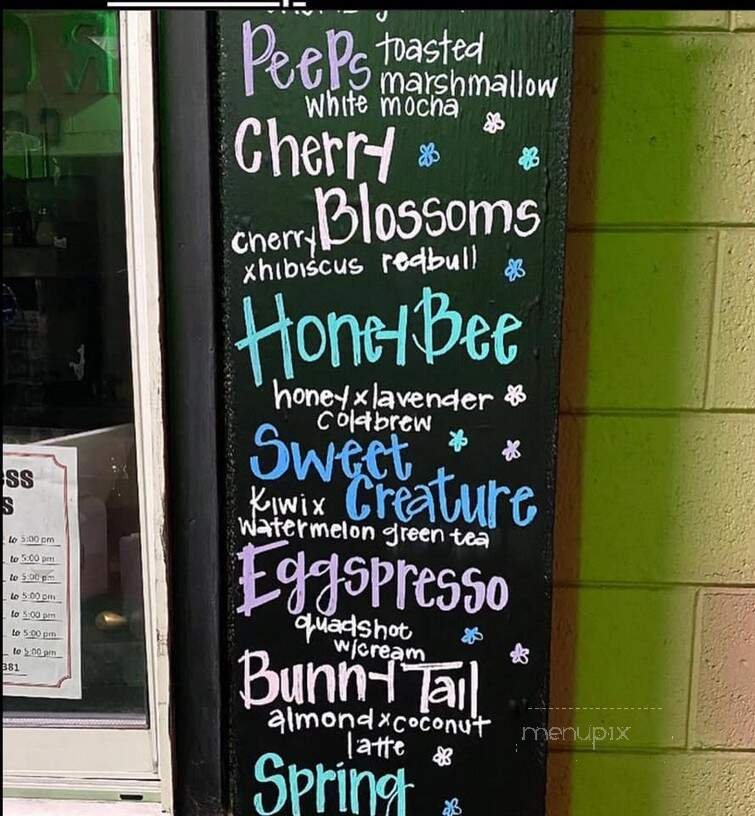 Peeps toasted
marshmallow
white mocha
Cherry
Blossoms
cherry
xhibiscus redbull
Honey Bee
honey x lavender
coldbrew
Sweet
Creature
Kiwi x
watermelon green tea
Eggspresso
quadshot
w/cream
Bunny Tail
almond x coconut
latte
Spring
to 5:00 pm
to 5:00 pm
to 5:00 pm
to 5:00 pm
to 5:00 pm
to 5:00 pm
to 5:00 pm
381
menupix